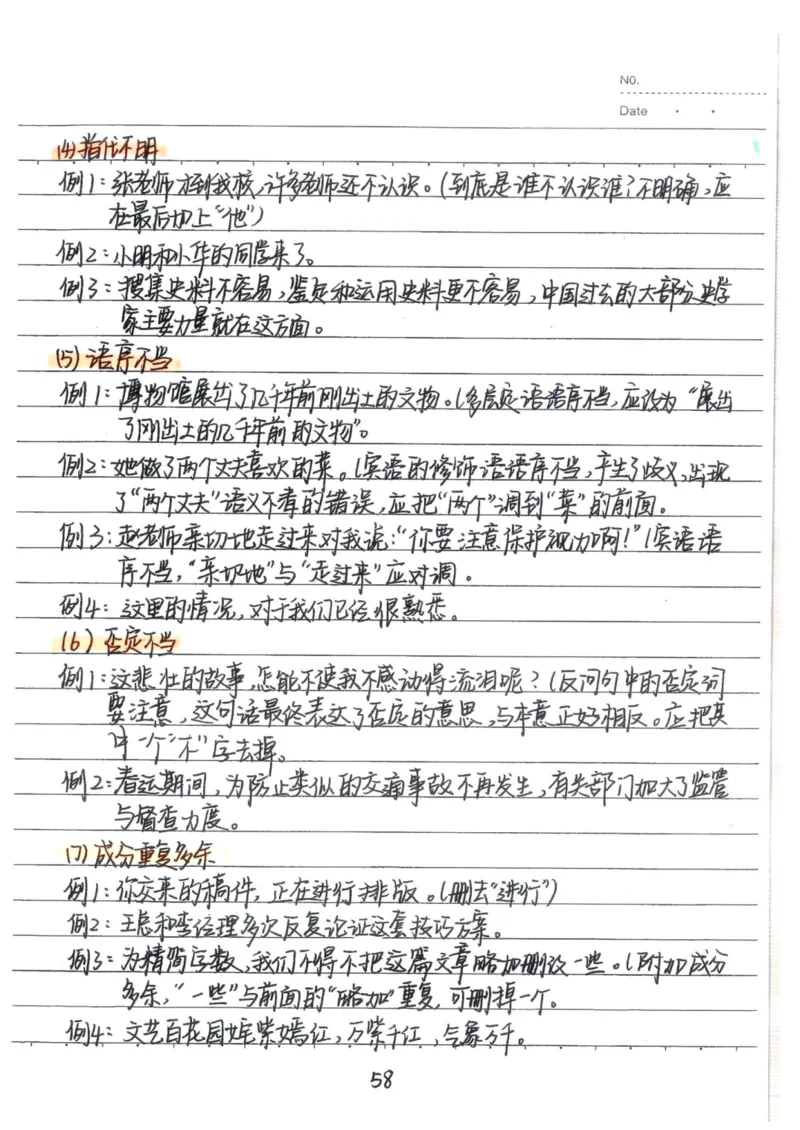 NO.
Date
(4)指代不明
例1:张老师才到我校,许多老师还不认识。(到底是谁不认识谁?不明确,应
在最后加上“他”)
例2:小明和小华的同学来了。
例3:搜集史料不容易,鉴定和运用史料更不容易,中国过去的大部分史学
家主要力量就在这方面。
(5)语序不当
例1:博物馆展出了几千年前刚出土的文物。(多层定语语序不当,应改为“展出
了刚出土的几千年前的文物”。
例2:她做了两个丈夫喜欢的菜。(宾语的修饰语语序不当,产生了歧义,出现
了“两个丈夫”语义不清的错误,应把“两个”调到“菜”的前面。
例3:赵老师亲切地走过来对我说:“你要注意保护视力啊!”(宾语语
序不当,“亲切地”与“走过来”应对调。
例4:这里的情况,对于我们已经很熟悉。
(6)否定不当
例1:这悲壮的故事,怎能不使我不感动得流泪呢?(反问句中的否定词
要注意,这句话最终表达了否定的意思,与本意正好相反。应把其
中一个“不”字去掉。
例2:春运期间,为防止类似的交通事故不再发生,有关部门加大了监管
与督查力度。
(7)成分重复多余
例1:你交来的稿件,正在进行排版。(删去“进行”)
例2:王总和李经理多次反复论证这套技巧方案。
例3:为精简字数,我们不得不把这篇文章略加删改一些。(附加成分
多余,“一些”与前面的“略加”重复,可删掉一个。
例4:文艺百花园姹紫嫣红,万紫千红,气象万千。
58